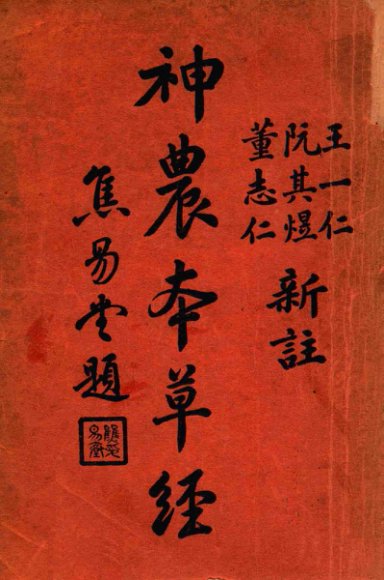 王一仁
阮其煜
董志仁
新註
神農本草經
焦易堂題
焦易堂